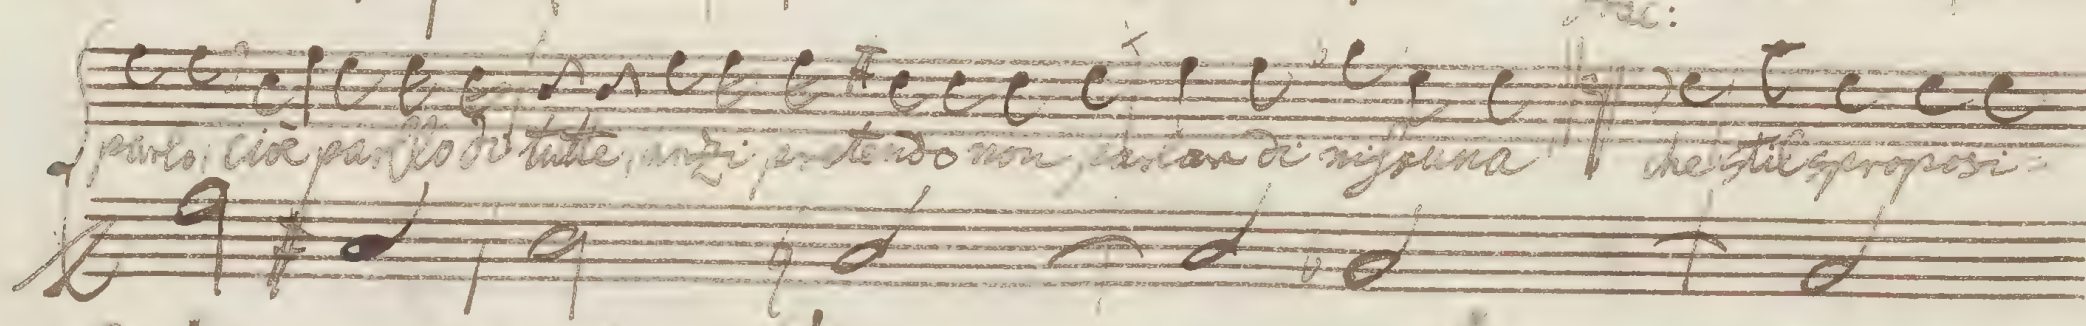 parlo, cioè parlo di tutte, anzi pretendo non parlar di nissuna che stil sproposi=